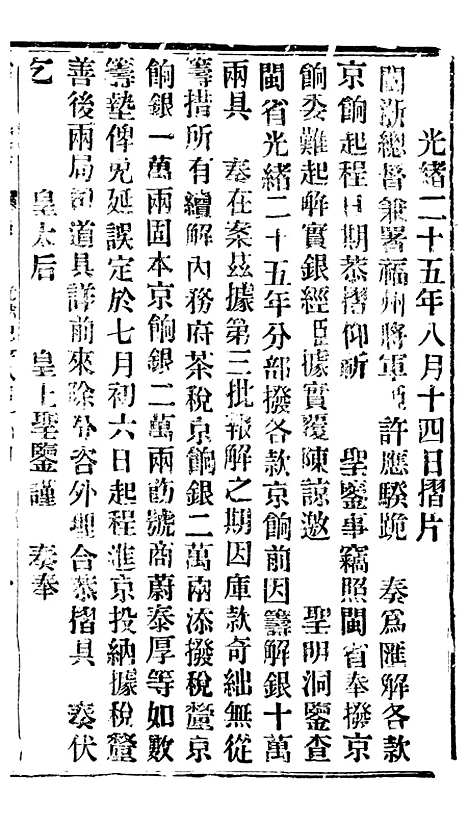 光緒二十五年八月十四日摺片
閩浙總督兼署福州將軍臣許應騤跪 奏爲匯解各款
京餉起程日期恭摺仰祈 聖鑒事竊照閩省奉撥京
餉委難起解實銀經臣據實覆陳諒邀 聖明洞鑒查
閩省光緒二十五年分部撥各款京餉前因籌解銀十萬
兩具 奏在案茲據第三批報解之期因庫款奇絀無從
籌措所有續解內務府茶稅京餉銀二萬兩添撥稅釐京
餉銀一萬兩固本京餉銀二萬兩飭號商蔚泰厚等如數
籌墊俾免延誤定於七月初六日起程進京投納據稅釐
善後兩局司道具詳前來除分咨外理合恭摺具 奏伏
乞 皇太后 皇上聖鑒謹 奏奉